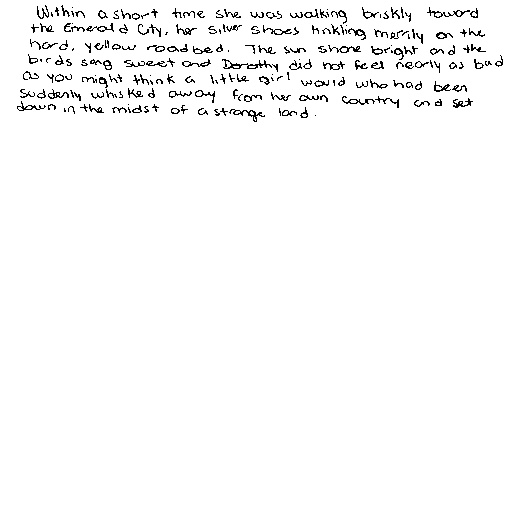 Within a short time she was walking briskly toward
the Emerald City, her Silver Shoes tinkling merrily on the
hard, yellow roadbed. The sun shone bright and the
birds sang sweet and Dorothy did not feel nearly as bad
as you might think a little girl would who had been
suddenly whisked away from her own country and set
down in the midst of a strange land.